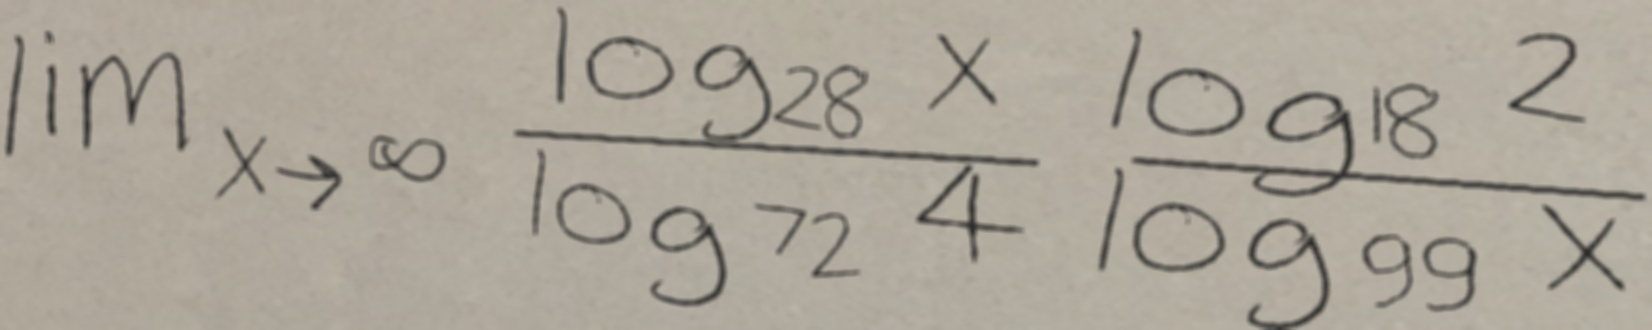 lim x→∞ log28 x / log72 4 log18 2 / log99 x